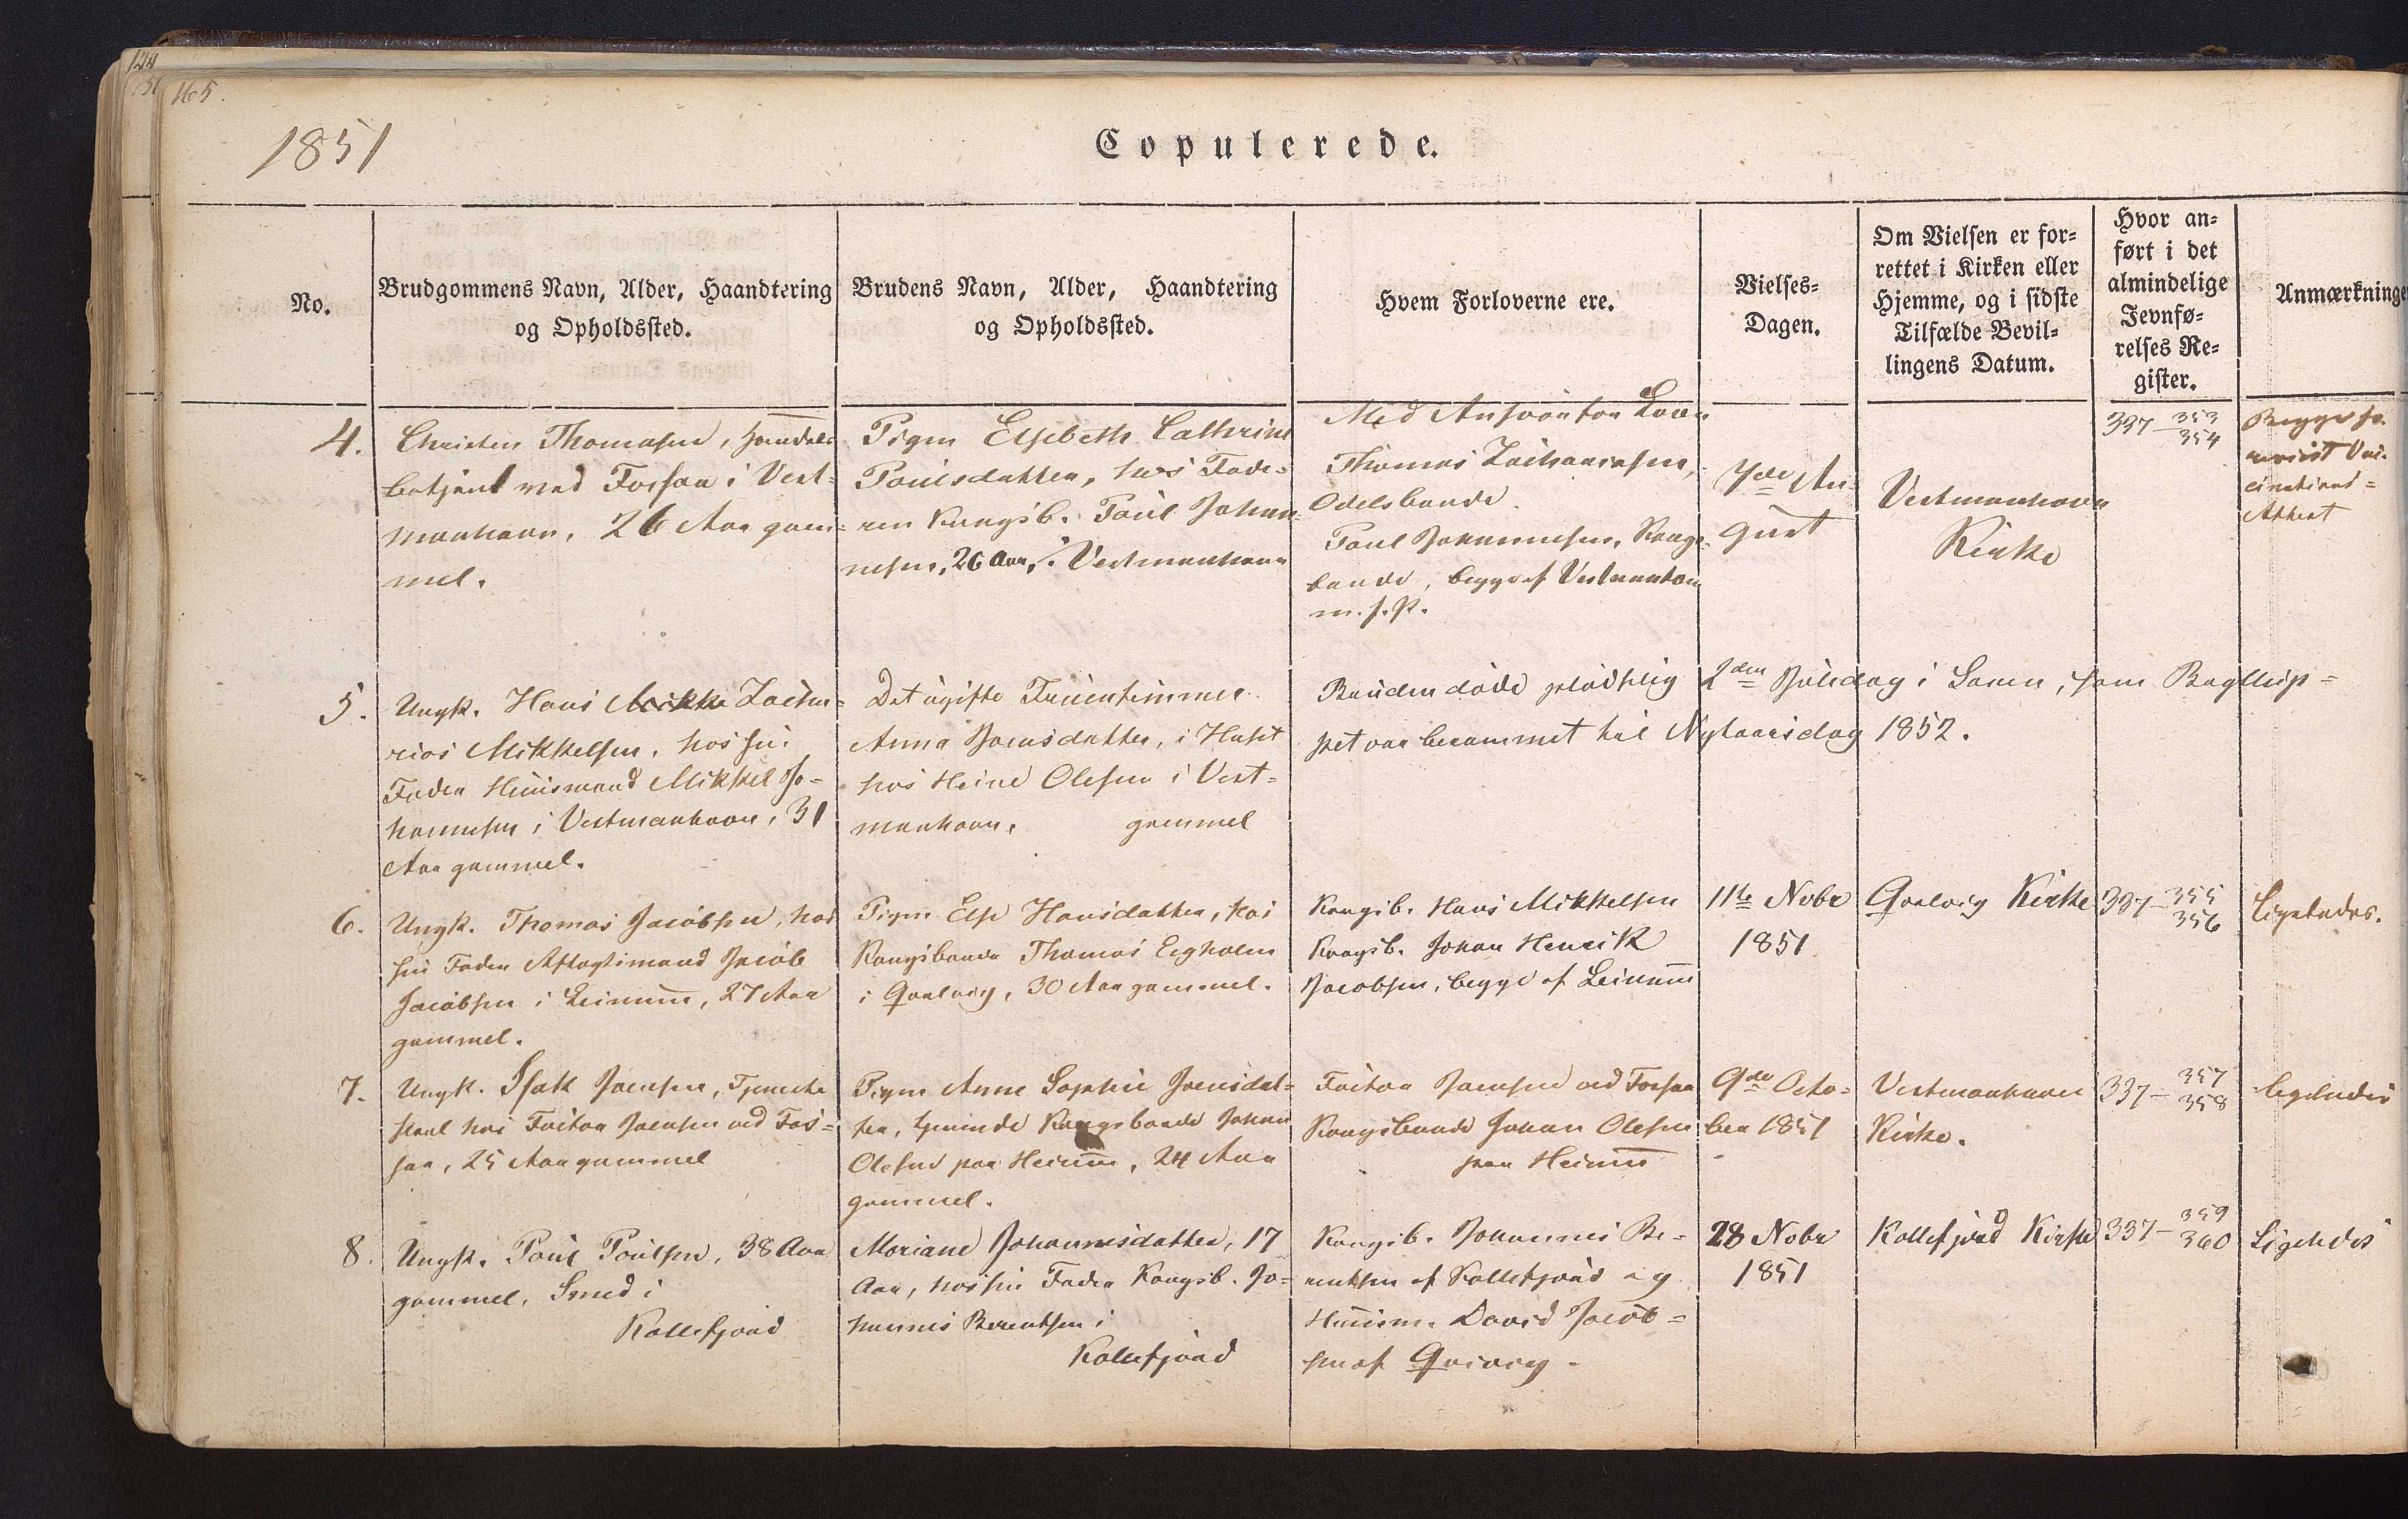 165.
1851
Copulerede.
No.
Brudgommens Navn, Alder, Haandtering
og Opholdssted.
Brudens Navn, Alder, Haandtering
og Opholdssted.
Hvem Forloverne ere.
Vielses-
Dagen.
Om Vielsen er for-
rettet i Kirken eller
Hjemme, og i sidste
Tilfælde Bevil-
lingens Datum.
Hvor an-
ført i det
almindelige
Jevnfø-
relses Re-
gister.
Anmærkninge
4.
Christen Thomasen, Handels
betjent ved Fossaa i Vest-
manhavn, 26 Aar gam-
mel.
Pigen Elsebeth Cathrine
Poulsdatter, hos Fade-
ren Kongsb. Poul Johan-
nesen, 26 Aar, i Vestmanhavn
Med Ansvar for Loven
Thomas Zachariasen,
Odelsbonde.
Poul Johannesen, Kongs-
bonde, begge af Vestmanhavn
7de Au-
gust
Vestmanhavn
Kirke
337-353
354
Begge fo-
reviist Vac-
cinations-
Attest
5.
Ungk. Hans Zacha-
rias Mikkelsen, hos sin
Fader Huusmand Mikkel Jo-
hannesen i Vestmanhavn, 31
Aar gammel.
Det ugifte Fruentimmer
Anna Joensdatter, i Huset
hos Heine Olesen i Vest-
manhavn, gammel
Bruden døde pludselig 2den Juledag i Saren, som Bryllup-
pet var berammet til Nytaarsdag 1852.
6.
Ungk. Thomas Jacobsen, hos
sin Fader Aftægtsmand Jacob
Jacobsen i Leinum, 27 Aar
gammel.
Pigen Else Hansdatter, hos
Kongsbonde Thomas Eegholm
i Qvalvig, 30 Aar gammel.
Kongsb. Hans Mikkelsen
Kongsb. Johan Henrik
Jacobsen, begge af Leinum
11te Nobr
1851
Qvalvig Kirke
337-355
356
Ligeledes.
7.
Ungk. Isak Joensen, Tjeneste
karl hos Factor Joensen ved Fos-
saa, 25 Aar gammel
Pigen Anne Sophie Joensdat-
ter, tjenende Kongsbonde Johan
Olesen paa Heium, 24 Aar
gammel.
Factor Joensen ved Fossaa
Kongsbonde Johan Olesen
paa Heium
9de Octo-
ber 1851
Vestmanhavn
Kirke.
337-357
358
ligeledes
8.
Ungk. Poul Poulsen, 38 Aar
gammel, Smed i
Kollefjord
Mariane Johannesdatter, 17
Aar, hos sin Fader Kongsb. Jo-
hannes Berentsen i
Kollefjord
Kongsb. Johannes Be-
rentsen af Kollefjord og
Huusm. David Jacob-
sen af Qvivig.
28 Nobr
1851
Kollefjord Kirke
337-359
360
Ligeledes